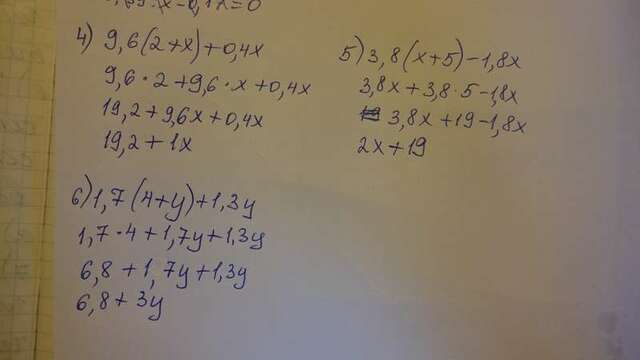 4) 9,6(2+x)+0,4x
9,6·2+9,6·x+0,4x
19,2+9,6x+0,4x
19,2+1x
5) 3,8(x+5)-1,8x
3,8x+3,8·5-1,8x
3,8x+19-1,8x
2x+19
6) 1,7(4+y)+1,3y
1,7·4+1,7y+1,3y
6,8+1,7y+1,3y
6,8+3y